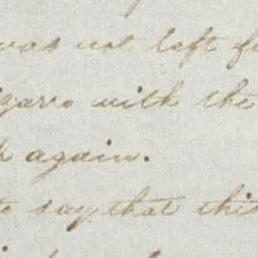 was not left f
izaro with the
k again.
te say that this